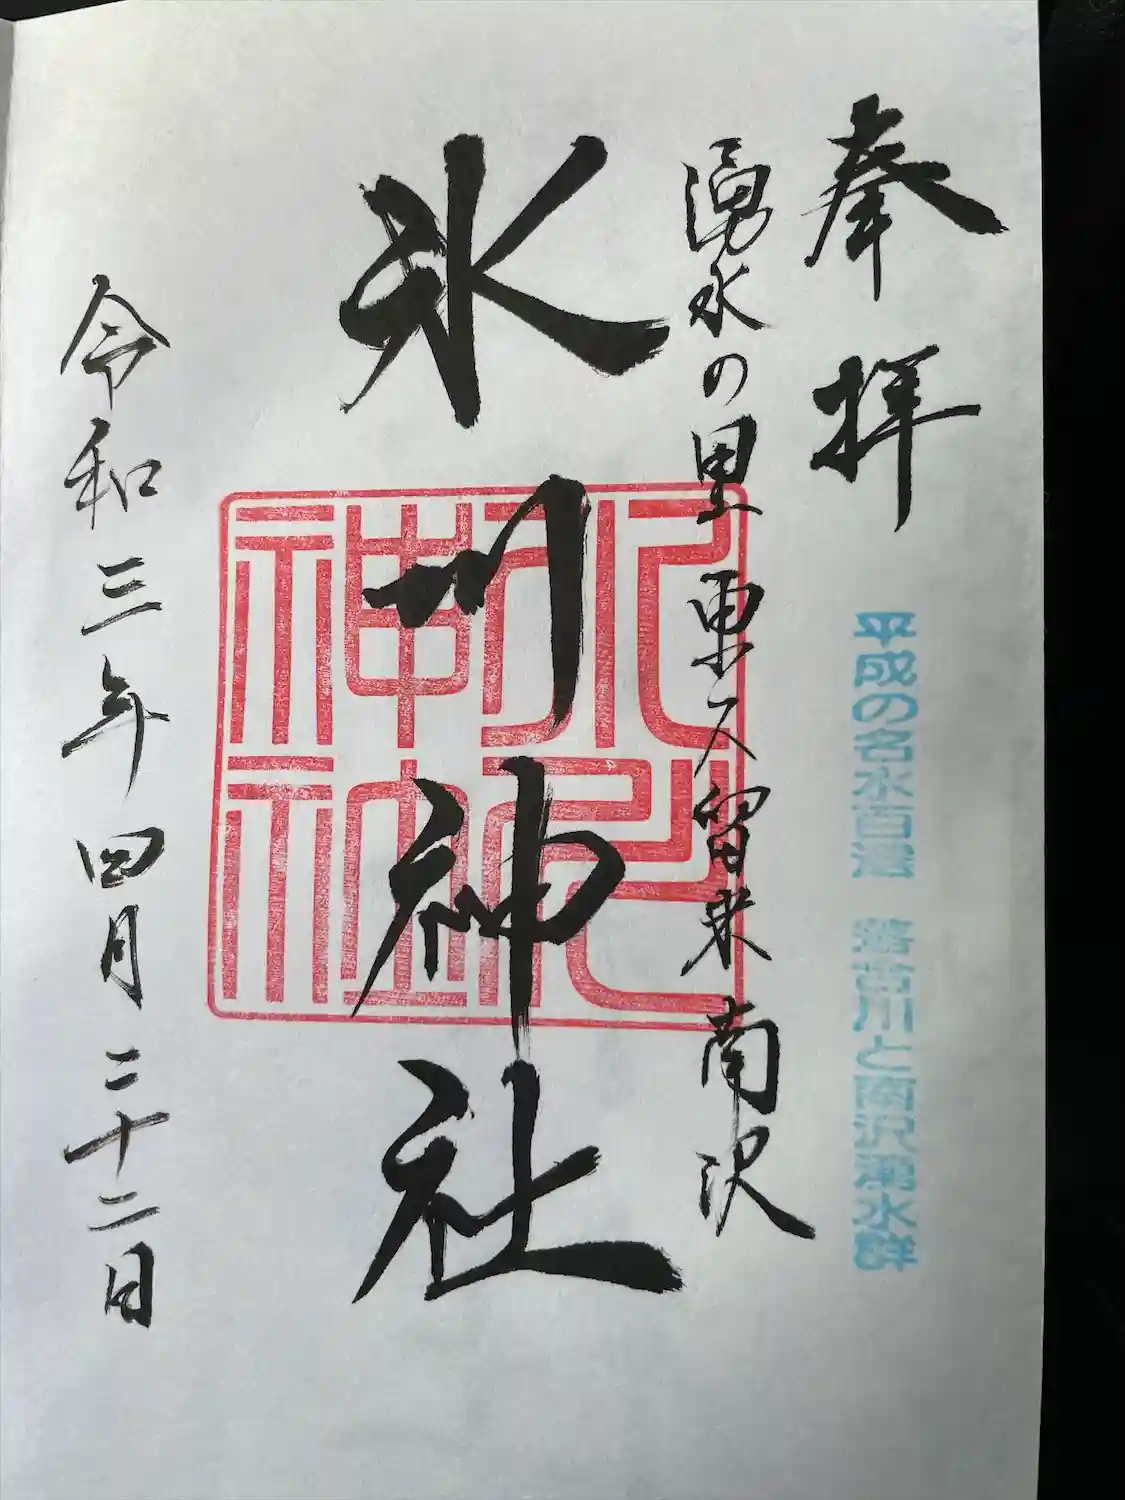 奉拝
平成の名水百選 落合川と南沢湧水群
湧水の里 東久留米 南沢
氷川神社
氷川
神社
令和三年四月二十二日